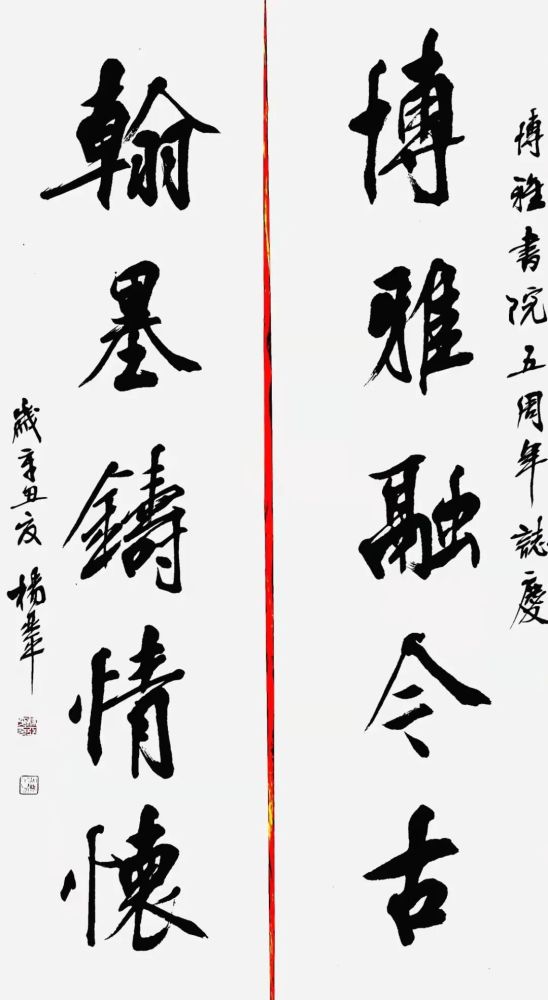 博雅書院五周年誌慶
博雅融今古
翰墨鑄情懷
歲辛丑夏楊